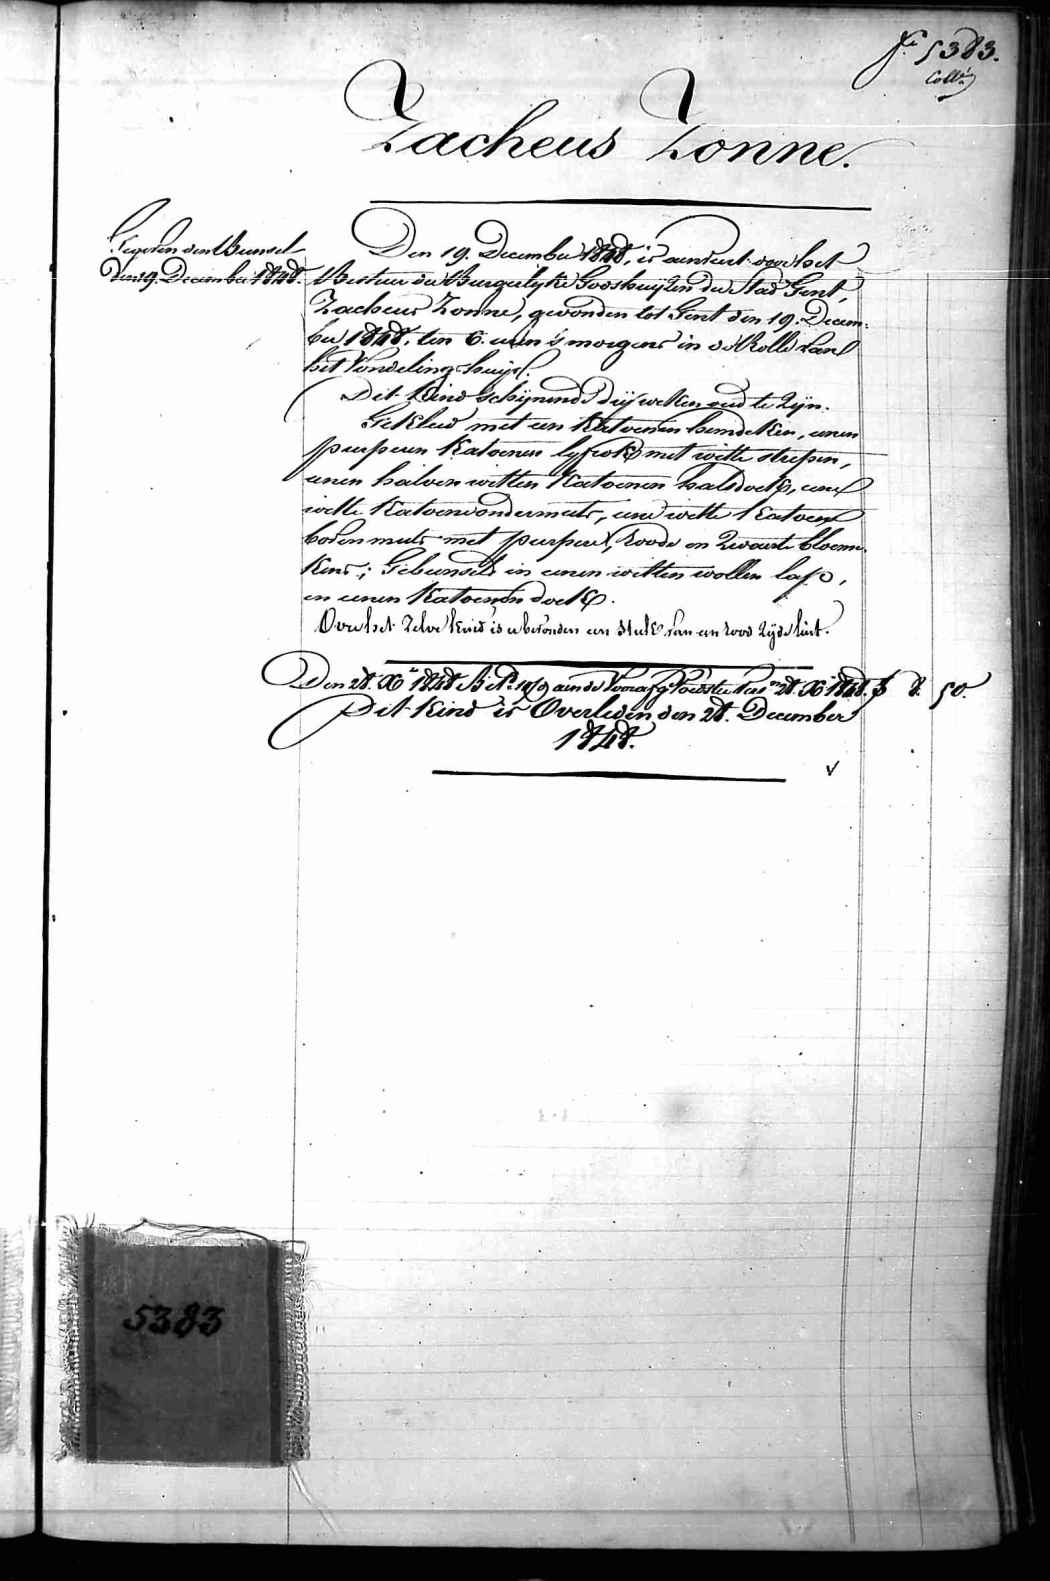 f.º 5383.
Coll.é
Zacheus Zonne.
Gegeven den Bunsel
den 19. December 1848.
Den 19. December 1848, is aenveert door het
Bestuer der Burgerlyke Godshuyzen der Stad Gent,
Zacheus Zonne, gevonden tot Gent den 19. Decem-
ber 1848, ten 6. uren 's morgens in de Rolle van
het Vondelinghuys.
Dit Kind schynende dry weken oud te zyn.
Gekleed met een Katoenen hemdeken, eenen
purpuren Katoenen lyfrok met witte strepen,
eenen halven witten Katoenen halsdoek, eene
witte Katoene ondermuts, eene witte Katoene
boven muts met purpere, roode en zwarte bloem-
kens; Gebunseld in eenen witten wollen lap,
en eenen Katoenen doek.
Over het zelve kind is er bevonden een stuk van een rood zyde lint.
Den 28. Xbre 1848 B et No 1919 aen de Voorafg. Voedster 28. Xbre 1848. f 8. 50.
Dit Kind is Overleden den 28. December
1848.
5383